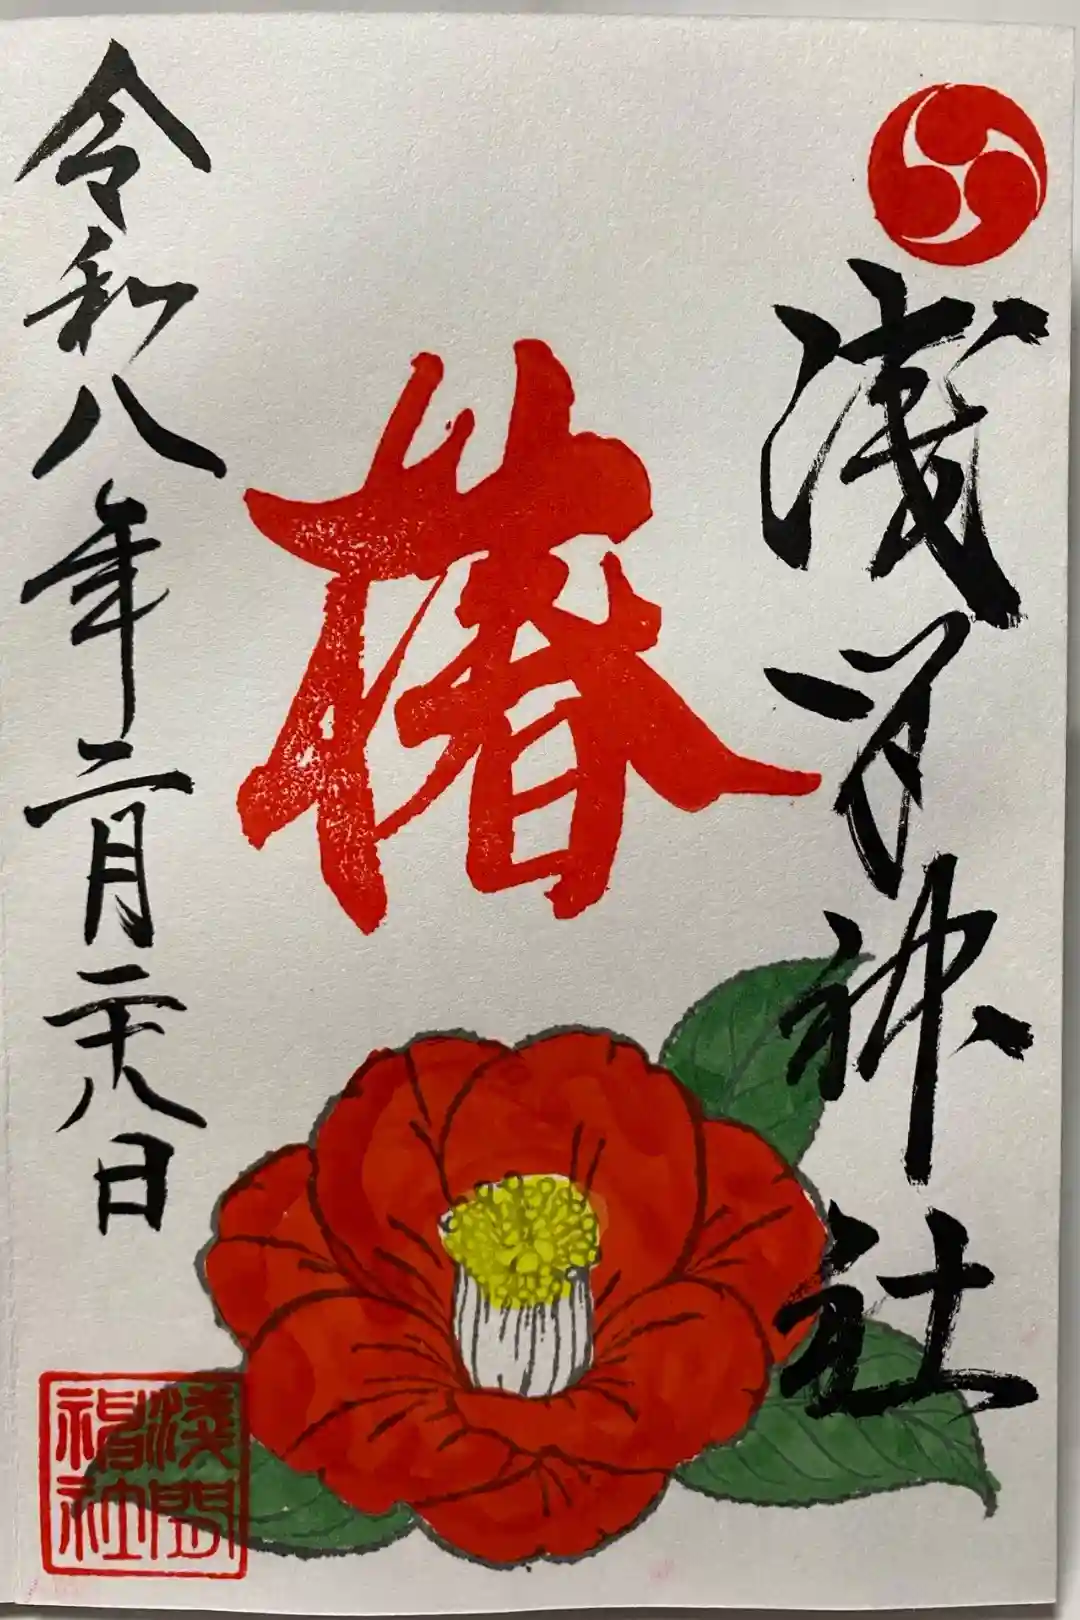 浅間神社
椿
令和八年二月二十八日
浅間
神社